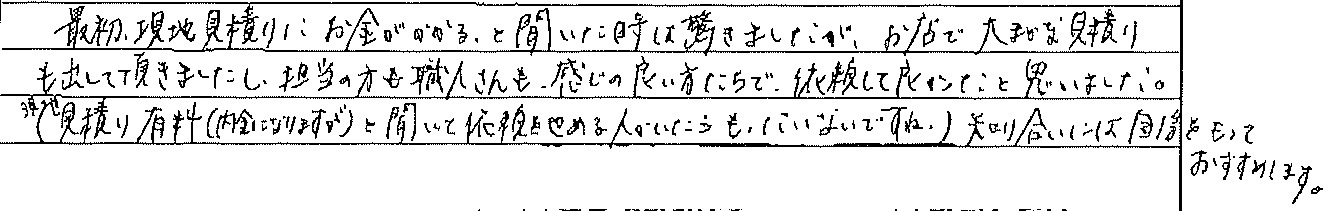 最初、現地見積りに お金がかかる、と聞いた時は驚きましたが、お店で大まかな見積り
も出して頂きましたし、担当の方も職人さんも、感じの良い方たちで、依頼して良かったと思いました。
現地(見積り有料(内金になりますが)と聞いて依頼を止める人がいたらもったいないですね。)知り合いには自信をもって
おすすめします。